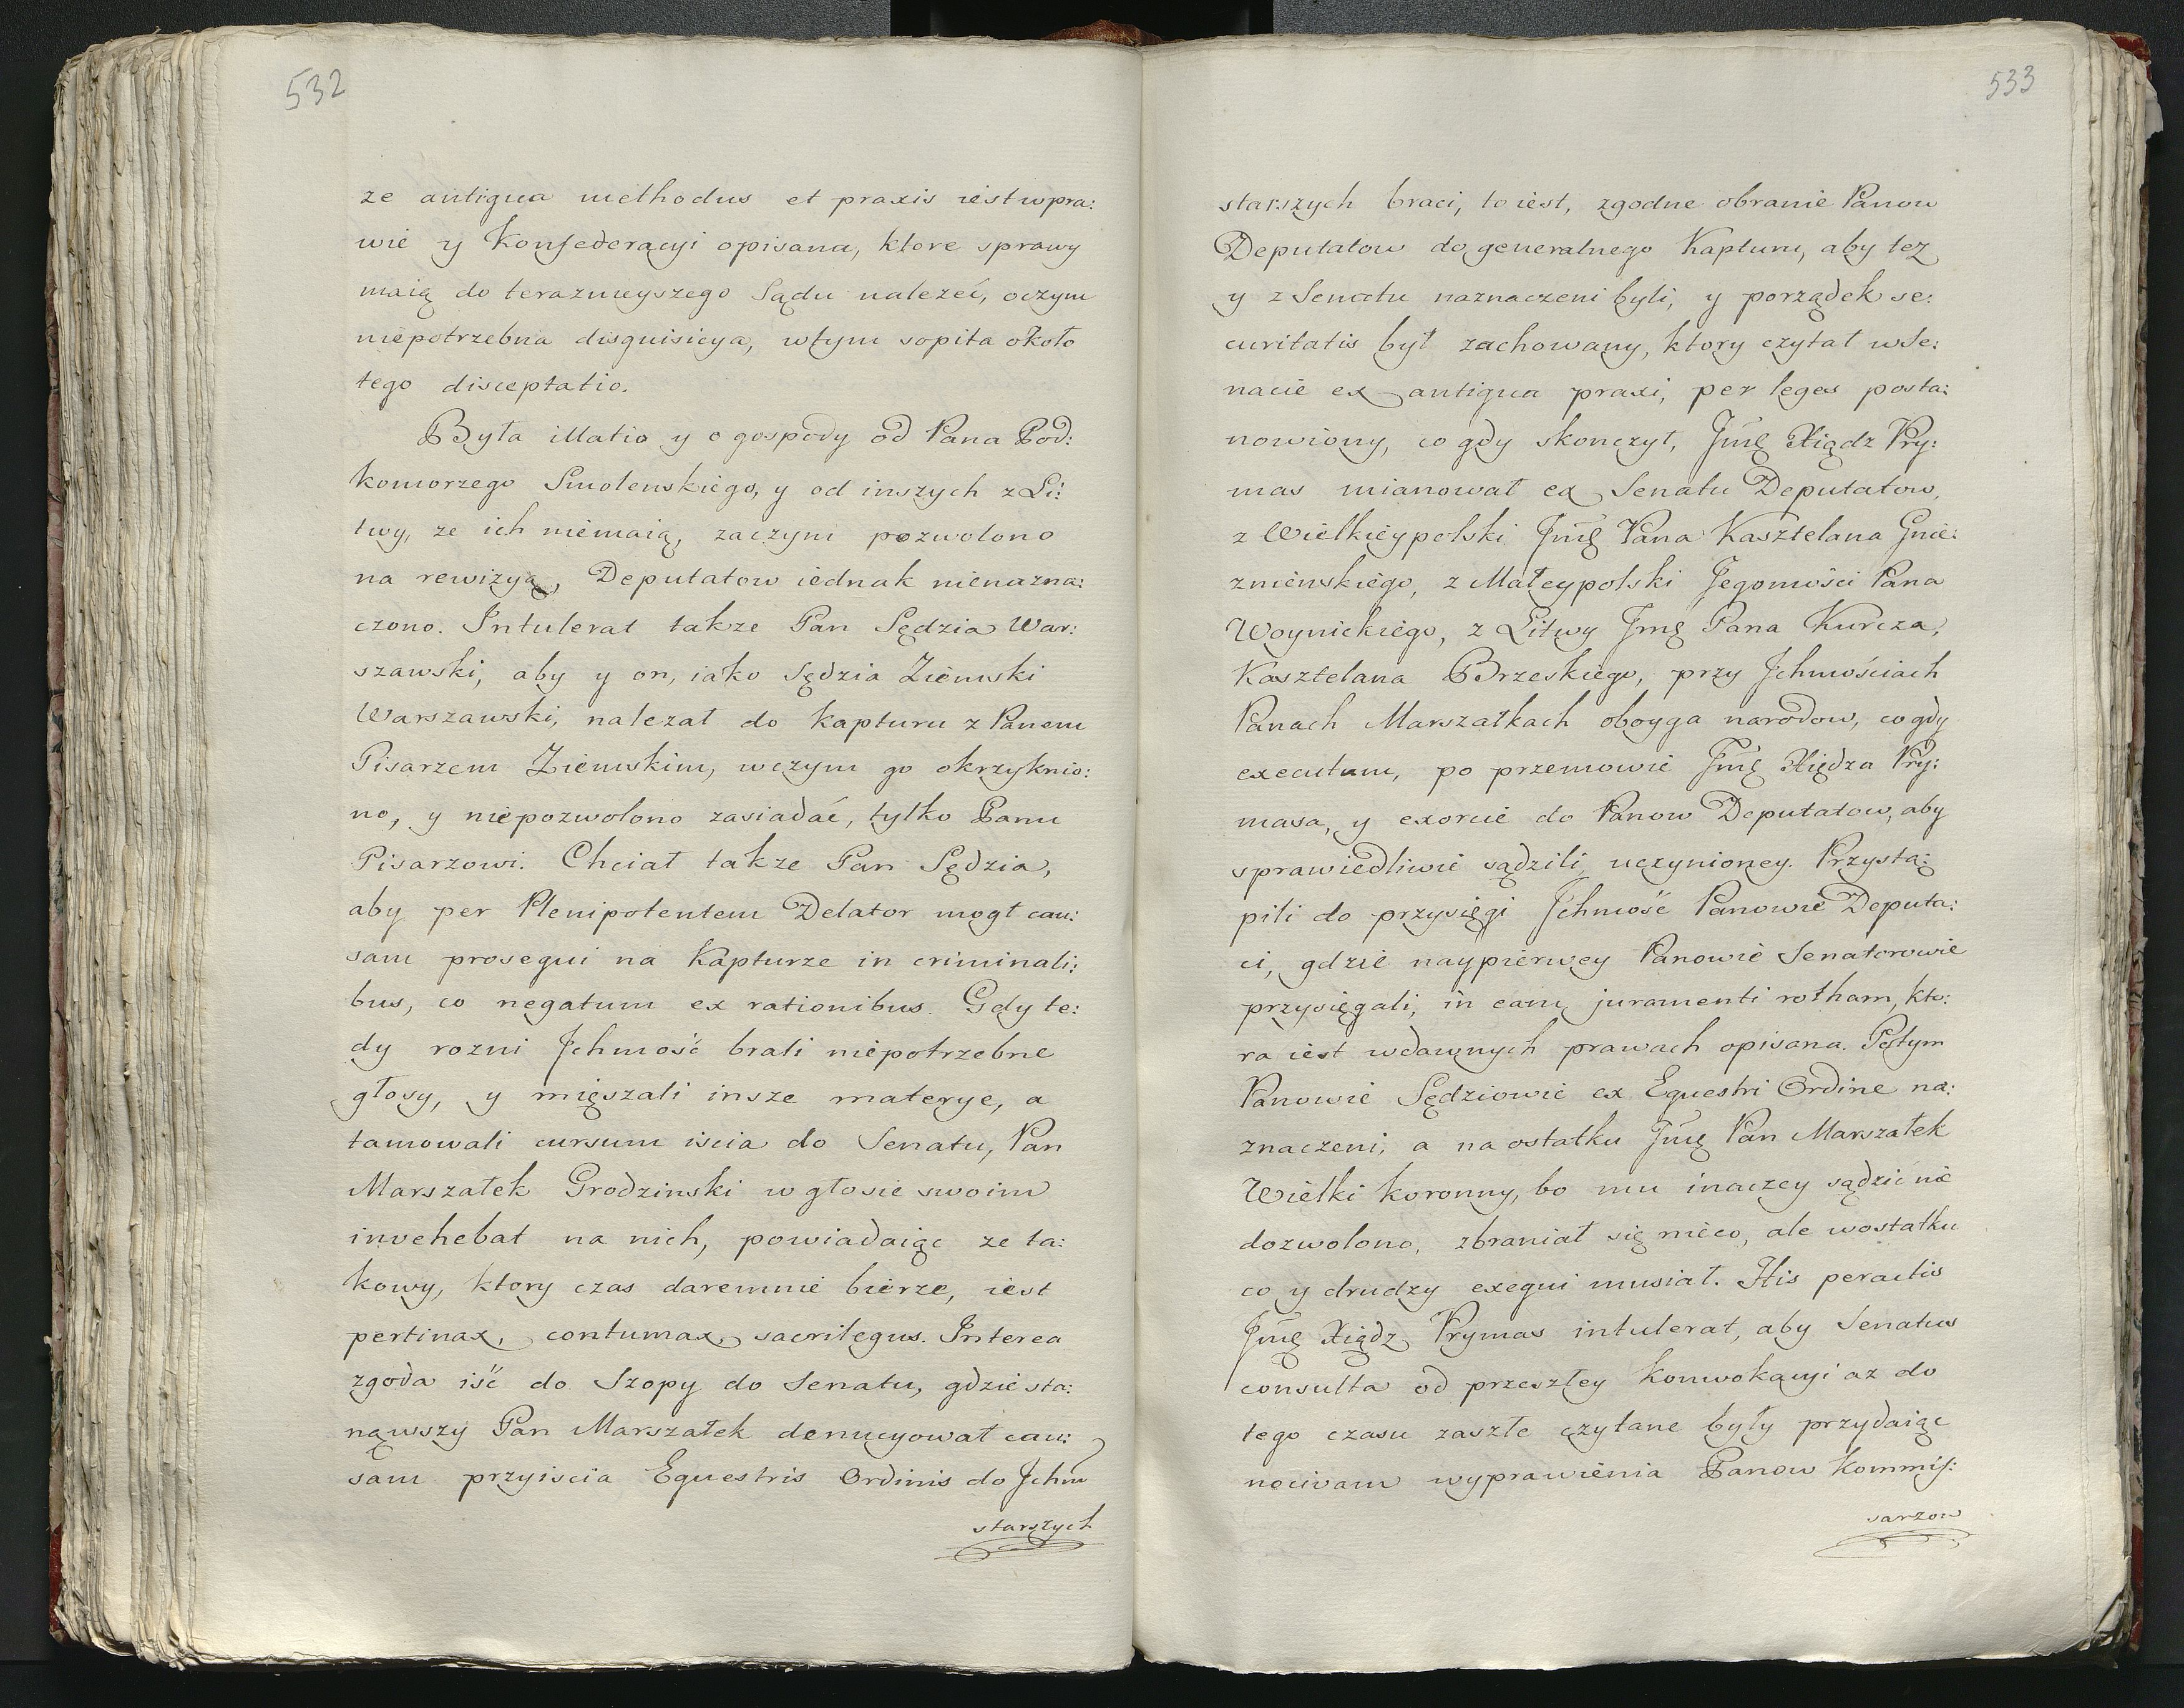 532
ze antiqua methodus et praxis iest w pra:
wie y Konfederacyi opisana, ktore sprawy
maią do terazneyszego Sądu nalezeć, oczym
niepotrzebna disquisicya, wtym sopita około
tego disceptatio.
Była illatio y o gospody od Pana Pod:
komorzego Smolenskiego, y od inszych z Li:
twy, ze ich niemaią, zaczym pozwolono
na rewizyą, Deputatow iednak nienazna:
czono. Intulerat takze Pan Sędzia War:
szawski, aby y on, iako Sędzia Ziemski
Warszawski, nalezał do kapturu z Panem
Pisarzem Ziemskim, wczym go okrzyknio:
no, y niepozwolono zasiadać, tylko Panu
Pisarzowi. Chciał takze Pan Sędzia,
aby per Plenipotentem Delator mogł cau:
sam prosequi na Kapturze in criminali:
bus, co negatum ex rationibus. Gdy te:
dy rozni Jchmość brali niepotrzebne
głosy, y mięszali insze materye, a
tamowali cursum iscia do Senatu, Pan
Marszałek Grodzinski w głosie swoim
invehebat na nich, powiadaiąc ze ta:
kowy, ktory czas daremnie bierze, iest
pertinax, contumax, sacrilegus. Interea
zgoda iść do Szopy do Senatu, gdzie sta:
nąwszy Pan Marszałek denucyował cau:
sam przyiscia Equestris Ordinis do Jchm
starszych
533
starszych braci, to iest, zgodne obranie Panow
Deputatow do generalnego Kapturu, aby tez
y z Senatu naznaczeni byli, y porządek se:
curitatis był zachowany, ktory czytał w Se:
nacie ex antiqua praxi, per leges posta:
nowiony, co gdy skonczył, Jmę Xiądz Pry:
mas mianował ex Senatu Deputatow,
z Wielkieypolski Jmę Pana Kasztelana Gnie:
znienskiego, z Małeypolski Jegomości Pana
Woynickiego, z Litwy Jmę Pana Kurcza,
Kasztelana Brzeskiego, przy Jchmościach
Panach Marszałkach oboyga narodow, co gdy
executum, po przemowie Jmę Xiędza Pry:
masa, y exorcie do Panow Deputatow, aby
sprawiedliwie sądzili, uczynioney. Przystą:
pili do przysięgi Jchmość Panowie Deputa:
ci, gdzie naypierwey Panowie Senatorowie
przysięgali, in eam juramenti rotham, kto:
ra iest wdawnych prawach opisana. Potym
Panowie Sędziowie ex Equestri Ordine na:
znaczeni, a na ostatku Jmę Pan Marszałek
Wielki koronny, bo mu inaczey sądzić nie
dozwolono, zbraniał się nieco, ale wostatku
co y drudzy exequi musiał. His peractis
Jmę Xiądz Prymas intulerat, aby Senatus
consulta od przeszłey konwokacyi az do
tego czasu zaszłe czytane były przydaiąc
nocivam wyprawienia Panow Kommis:
sarzow